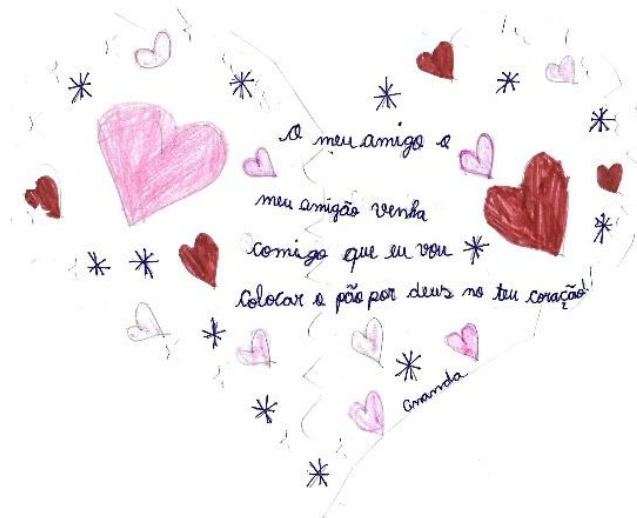 O meu amigo o
meu amigão venha
comigo que eu vou
colocar o pão por deus no teu coração!
Ananda